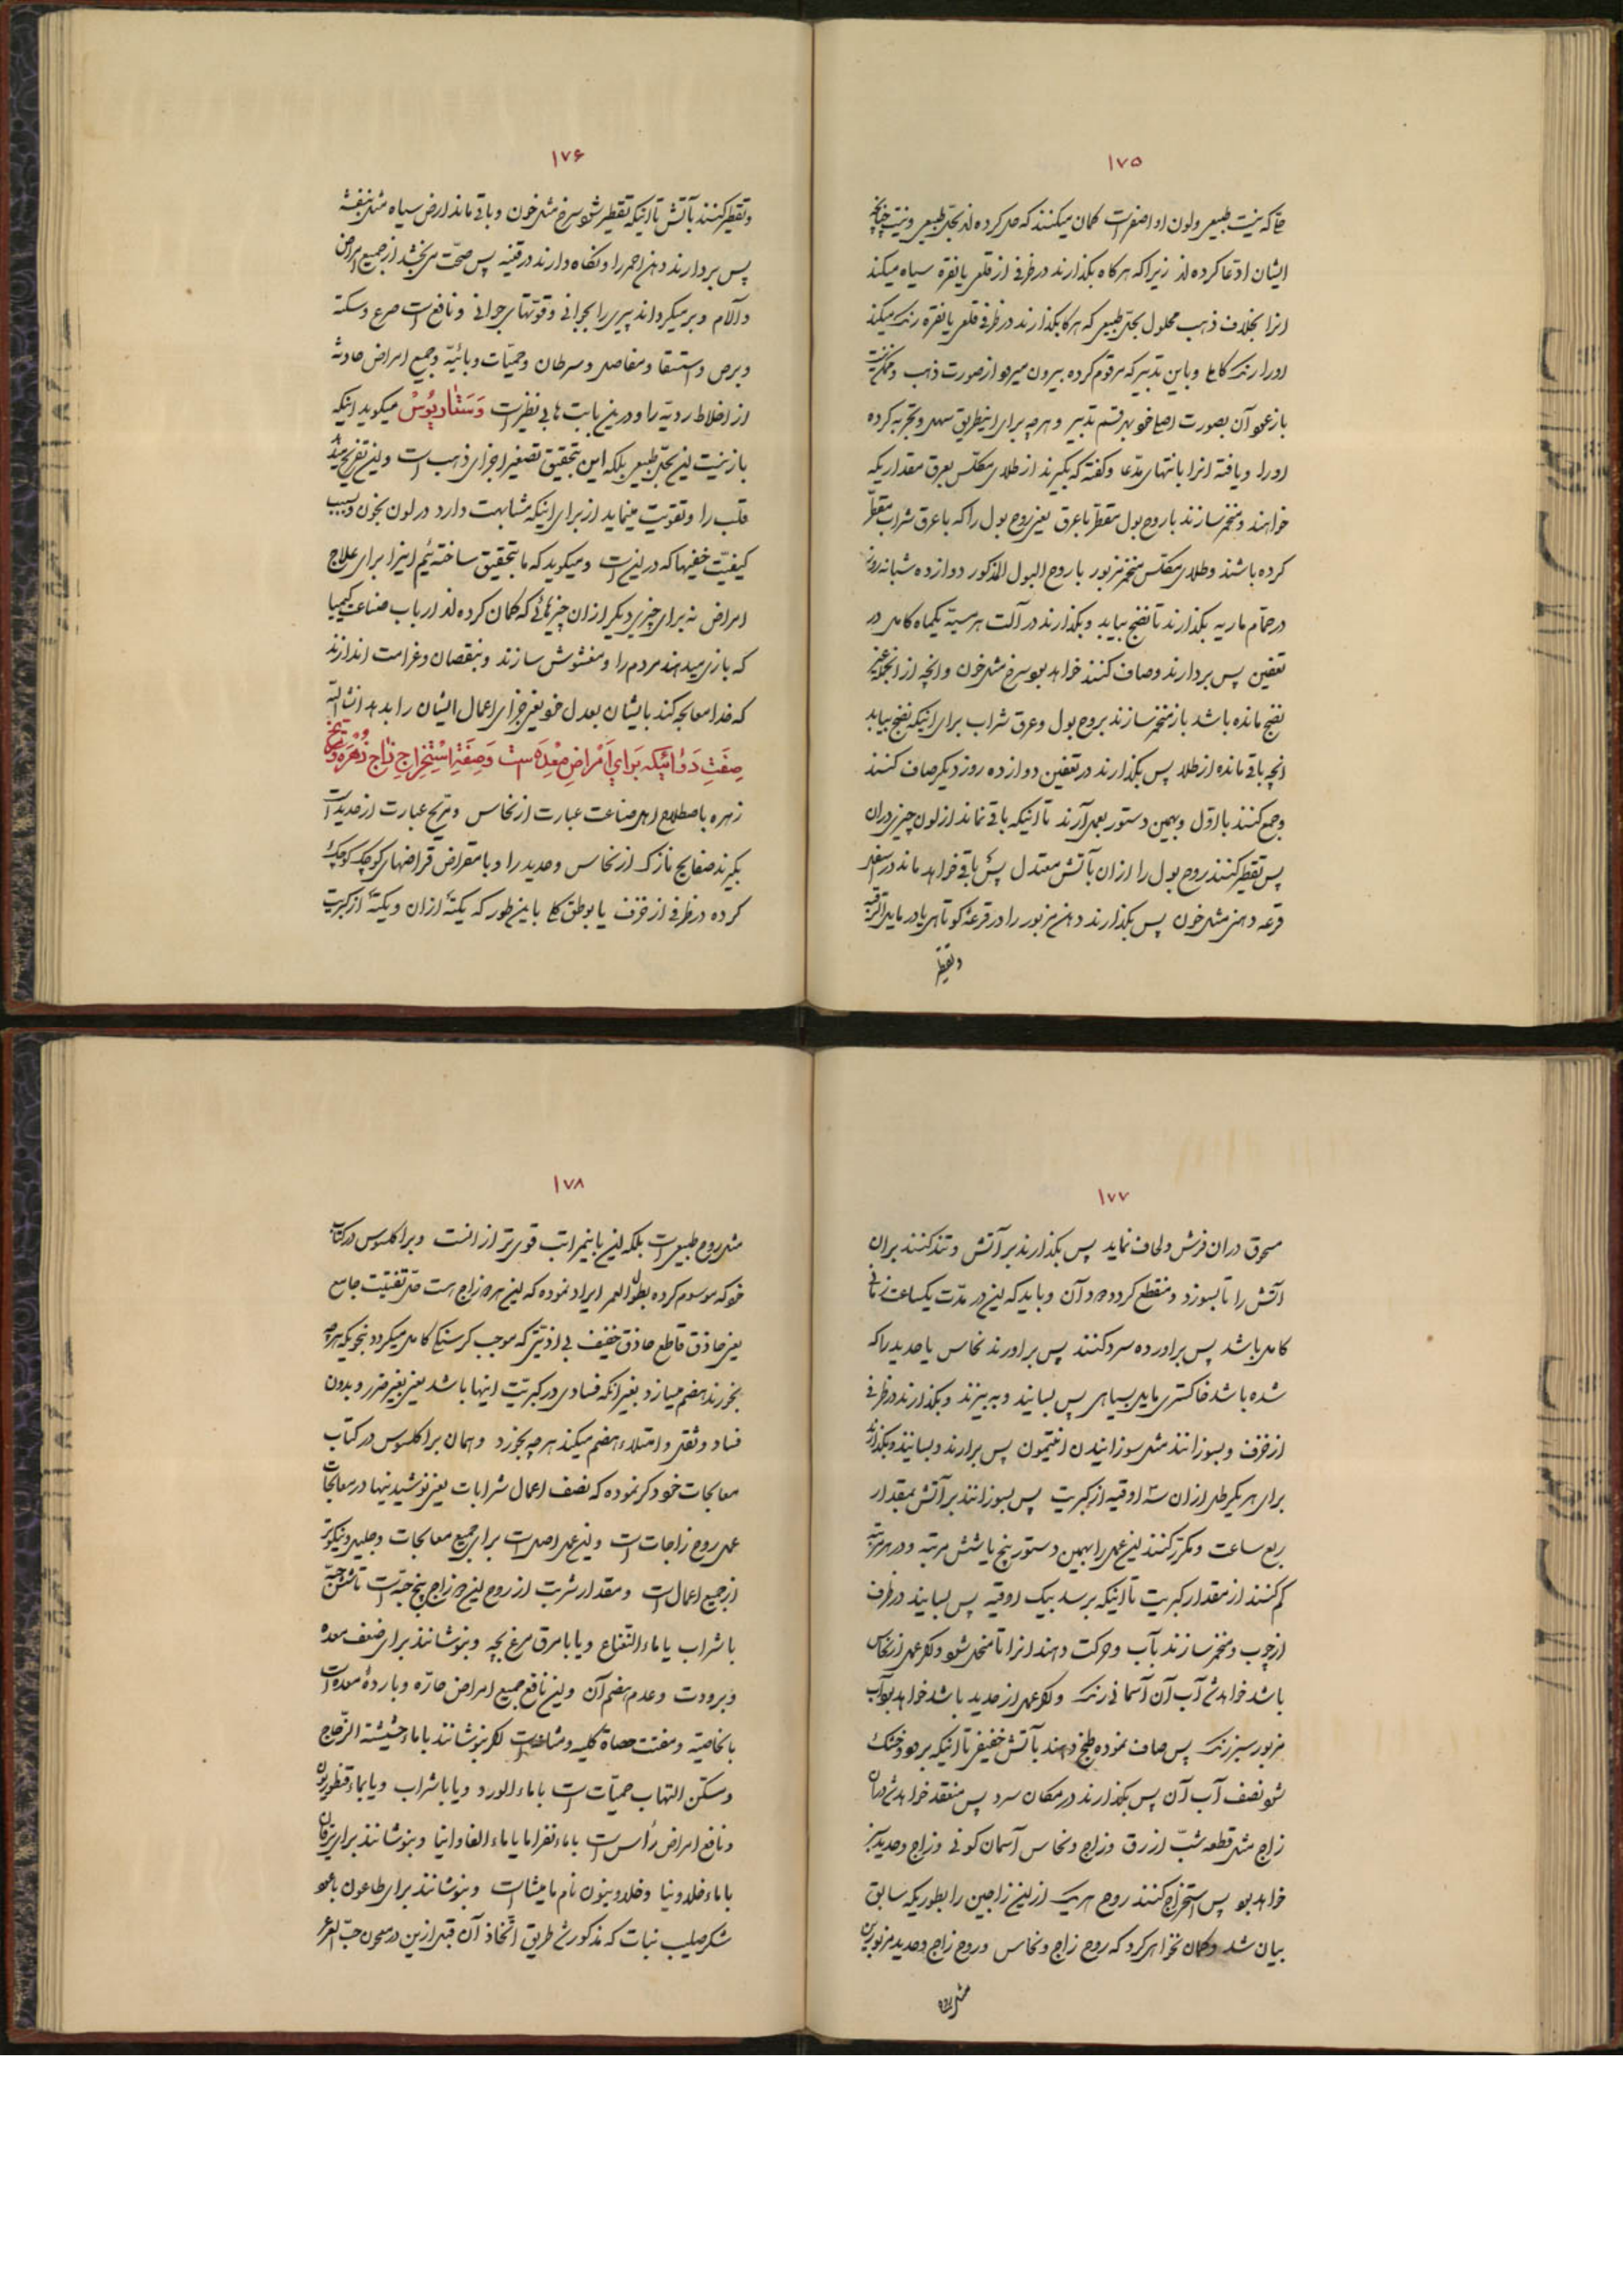 ١٧٥
حتا که نیست طبیعی ولون او اصفر است کمان میکنند که حل کرده اند بحل طبیعی ونیست چنانچه
ایشان ادّعا کرده اند زیرا که هر کاه بکذارند در ظرفی از قلعی یا نقره سیاه میکند
انرا بخلاف ذهب محلول بحل طبیعی که هر کاه بکذارند در ظرف قلعی یا نقره رنک میکند
اورا رنک طلا وباین تدبیر که مرقوم کرده بیرون میرود از صورت ذهب وممکن نیست
باز عود آن بصورت اصلی خود بهر قسم تدبیر وهرچه برای اینطریق سهل وتجربه کرده
اورا ویافته انرا بانتهای مدّعا وکفته که بکیرند از طلای مکلّس بعرق مقداریکه
خواهند ومتخمّر سازند با روح بول مقطّر با عرق یعنی روح بول را که با عرق شراب مقطّر
کرده باشند وطلای مکلّس متخمّر مزبور با روح البول المذکور دوازده شبانه روز
در حمّام ماریه بکذارند تا نضج بیابد وبکذارند در آلت هرسیّه یکماه کامل در
تعفین پس بردارند وصاف کنند خواهد بود سرخ مثل خون وانچه از انجمله غیر
نضج مانده باشد باز متخمّر سازند بروح بول وعرق شراب برای اینکه نضج بیابد
انچه باقی مانده از طلا پس بکذارند در تعفین دوازده روز دیکر صاف کنند
وجمع کنند با اوّل وبهمین دستور بعمل آرند تا اینکه باقی نماند از لون چیزی دران
پس تقطیر کنند روح بول را ازان بآتش معتدل پس باقی خواهد ماند در اسفل
قرعه دهنی مثل خون پس بکذارند دهن مزبور را در قرعهٔ کوتاهی یا در مایل الرقبه
وتقطیر
١٧۶
وتقطیر کنند بآتش تا اینکه تقطیر شود سرخ مثل خون وباقی ماند ارض سیاه مثل بنفشه
پس بردارند دهن احمر را ونکاه دارند در قنینه پس صحّت می بخشد از جمیع امراض
وآلام وبر میکرداند پیری را بجوانی وقوّتهای جوانی ونافع است صرع وسکته
وبرص واستسقا ومفاصل وسرطان وحمیّات وبائیّه وجمیع امراض حادثه
از اخلاط ردیّه را ودرین بابت ها بی نظیر است وَسَنَّاریُوسْ میکوید اینکه
باز نیست این بحلّ طبیعی بلکه این بتحقیق تصغیر اجزای ذهب است واین تفریح میدهد
قلب را وتقویت مینماید از برای اینکه مشابهت دارد در لون بخون وبسبب
کیفیّت خفیها که درین است ومیکوید که ما بتحقیق ساخته ئیم اینرا برای علاج
امراض نه برای چیزی دیکر ازان چیزهائی که کمان کرده اند ارباب صناعت کیمیا
که بازی میدهند مردم را ومغشوش سازند وبنقصان وغرامت اندازند
که خدا معامله کند بایشان بعدل خود یعنی جزای اعمال ایشان را بدهد انشا الله
صِفَتِ دَوٰائیکه بَرایِ اَمْراضِ مِعْدَه است وَصِفَةِ اِسْتِخراجِ زٰاجِ زُهْرَه وَمِرّیخ
زهره باصطلاح اهل صناعت عبارت از نحاس ومرّیخ عبارت از حدید است
بکیرند صفایح نازک از نحاس وحدید را وبا مقراض قراضهای کوچک کوچک
کرده در ظرفی از خزف یا بوطق کلی باین طور که یکته ازان ویکته از کبریت
١٧٧
مسحوق دران فرش ولحاف نماید پس بکذارند بر آتش وتند کنند بران
آتش را تا بسوزد ومنقطع کردد دود آن وباید که این در مدّت یکساعت زمانی
کامل باشد پس براورده سرد کنند پس براورند نحاس یا حدید را که
شده باشد خاکستری مایل بسیاهی پس بسایند وبه بیزند وبکذارند در ظرفی
از خزف وبسوزانند مثل سوزانیدن انتیمون پس برارند وبسایند وبکذارند
برای هر یکرطل ازان سه اوقیه از کبریت پس بسوزانند بر آتش بمقدار
ربع ساعت ومکرّر کنند این عمل را بهمین دستور پنج یا شش مرتبه ودر هر مرتبه
کم کنند از مقدار کبریت تا اینکه برسد بیک اوقیه پس بسایند در ظرف
از چوب ومتخمّر سازند بآب وحرکت دهند انرا تا منحل شود واکر عمل از نحاس
باشد خواهد شد آب آن آسمانی رنک واکر عمل از حدید باشد خواهد بود آب
مزبور سبز رنک پس صاف نموده طبخ دهند بآتش خفیف تا اینکه برود وخشک
شود نصف آب آن پس بکذارند در مکان سرد پس منعقد خواهد شد دران
زاج مثل قطعه شبّ ازرق وزاج ونحاس آسمان کونی وزاج وحدید سبز
خواهد بود پس استخراج کنند روح هر یک ازین زاجین را بطوریکه سابق
بیان شد وکمان نخواهی کرد که روح زاج ونحاس وروح زاج وحدید مزبورین
مثل روح
١٧٨
مثل روح طبیعی است بلکه این باینمراتب قوی تر از انست وبراکلسوس در کتاب
خود که موسوم کرده بطول العمر ایراد نموده که این هر دو زاج است حتی تفتیت جامع
یعنی حاذق قاطع حاذق خفیف بی اذیّتی که موجب کرسنکی کامل میکردد بنحویکه هرچه
بخورند هضم میسازد بغیر انکه فسادی در کبریّت اینها باشد یعنی بغیر ضرر وبدون
فساد وثقل وامتلاء هضم میکند هرچه بخورد وهمان براکلسوس در کتاب
معالجات خود ذکر نموده که نصف اعمال شرابات یعنی نوشیدنیها در معالجات
عمل روح زاجات است واین عمل اصل است برای جمیع معالجات وجلیل ونیکوتر
از جمیع اعمال است ومقدار شربت از روح این دو زاج پنج حبّه است تا شش حبّه
با شراب یا ماء النعناع ویا با مرق مرغ بچه وبنوشانند برای ضعف معده
وبرودت وعدم هضم آن واین نافع جمیع امراض حارّه وباردهٔ معده است
بالخاصیّه ومفتت حصاة کلیه ومثانه است اکر بنوشانند با ماء حشیشة الزّجاج
ومسکّن التهاب حمیّات است با ماء الورد ویا با شراب ویا بماء قنطوریون
ونافع امراض رأس است با ماء نفرامایا با ماء الفاوانیا وبنوشانند برای یرقان
با ماء خلدونیا وخلدوینون نام مامیشا است وبنوشانند برای طاعون با عود
شکر صلیب نبات که مذکور شد طریق اتّخاذ آن قبل ازین در معجون حبّ العرعر